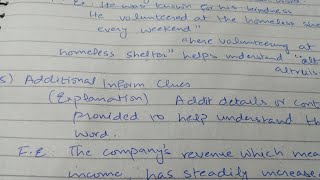 He was known for his kindness
He volunteered at the homeless she
every weekend"
where volunteering at
homeless shelter" helps understand "alt
altruis
5) Additional Inform Clues
(Explanation) Addit details or cont
provided to help understand th
word.
F.E: The company's revenue which mea
income, has steadily increase